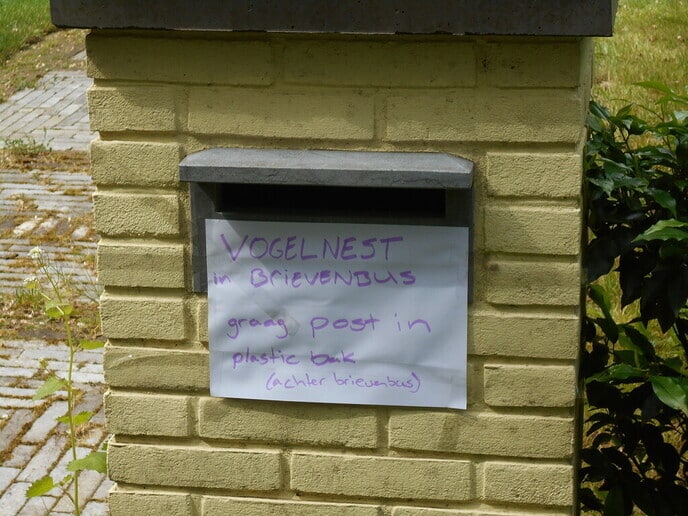 VOGELNEST
in BRIEVENBUS
graag post in
plastic bak
(achter brievenbus)